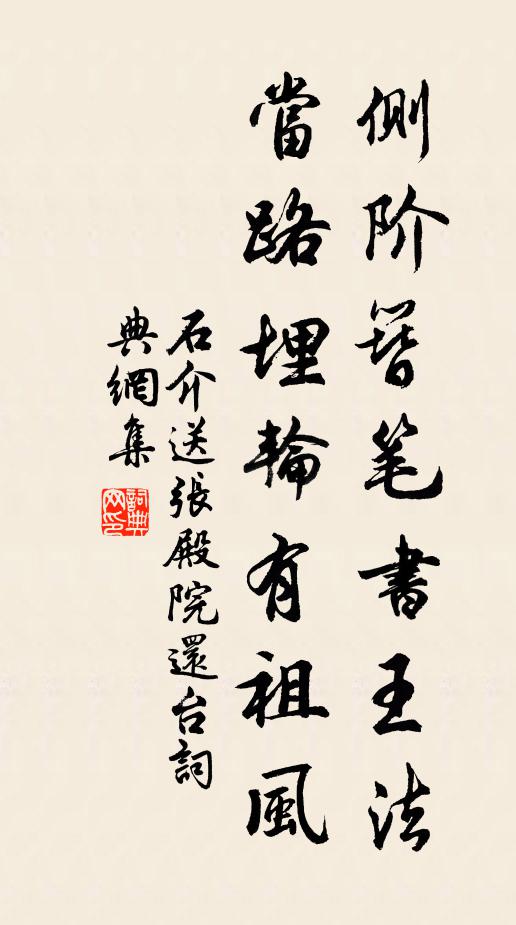 側阶簪笔書王法
當路埋輪有祖風
石介送張殿院還台詞
典網集
詞典网印